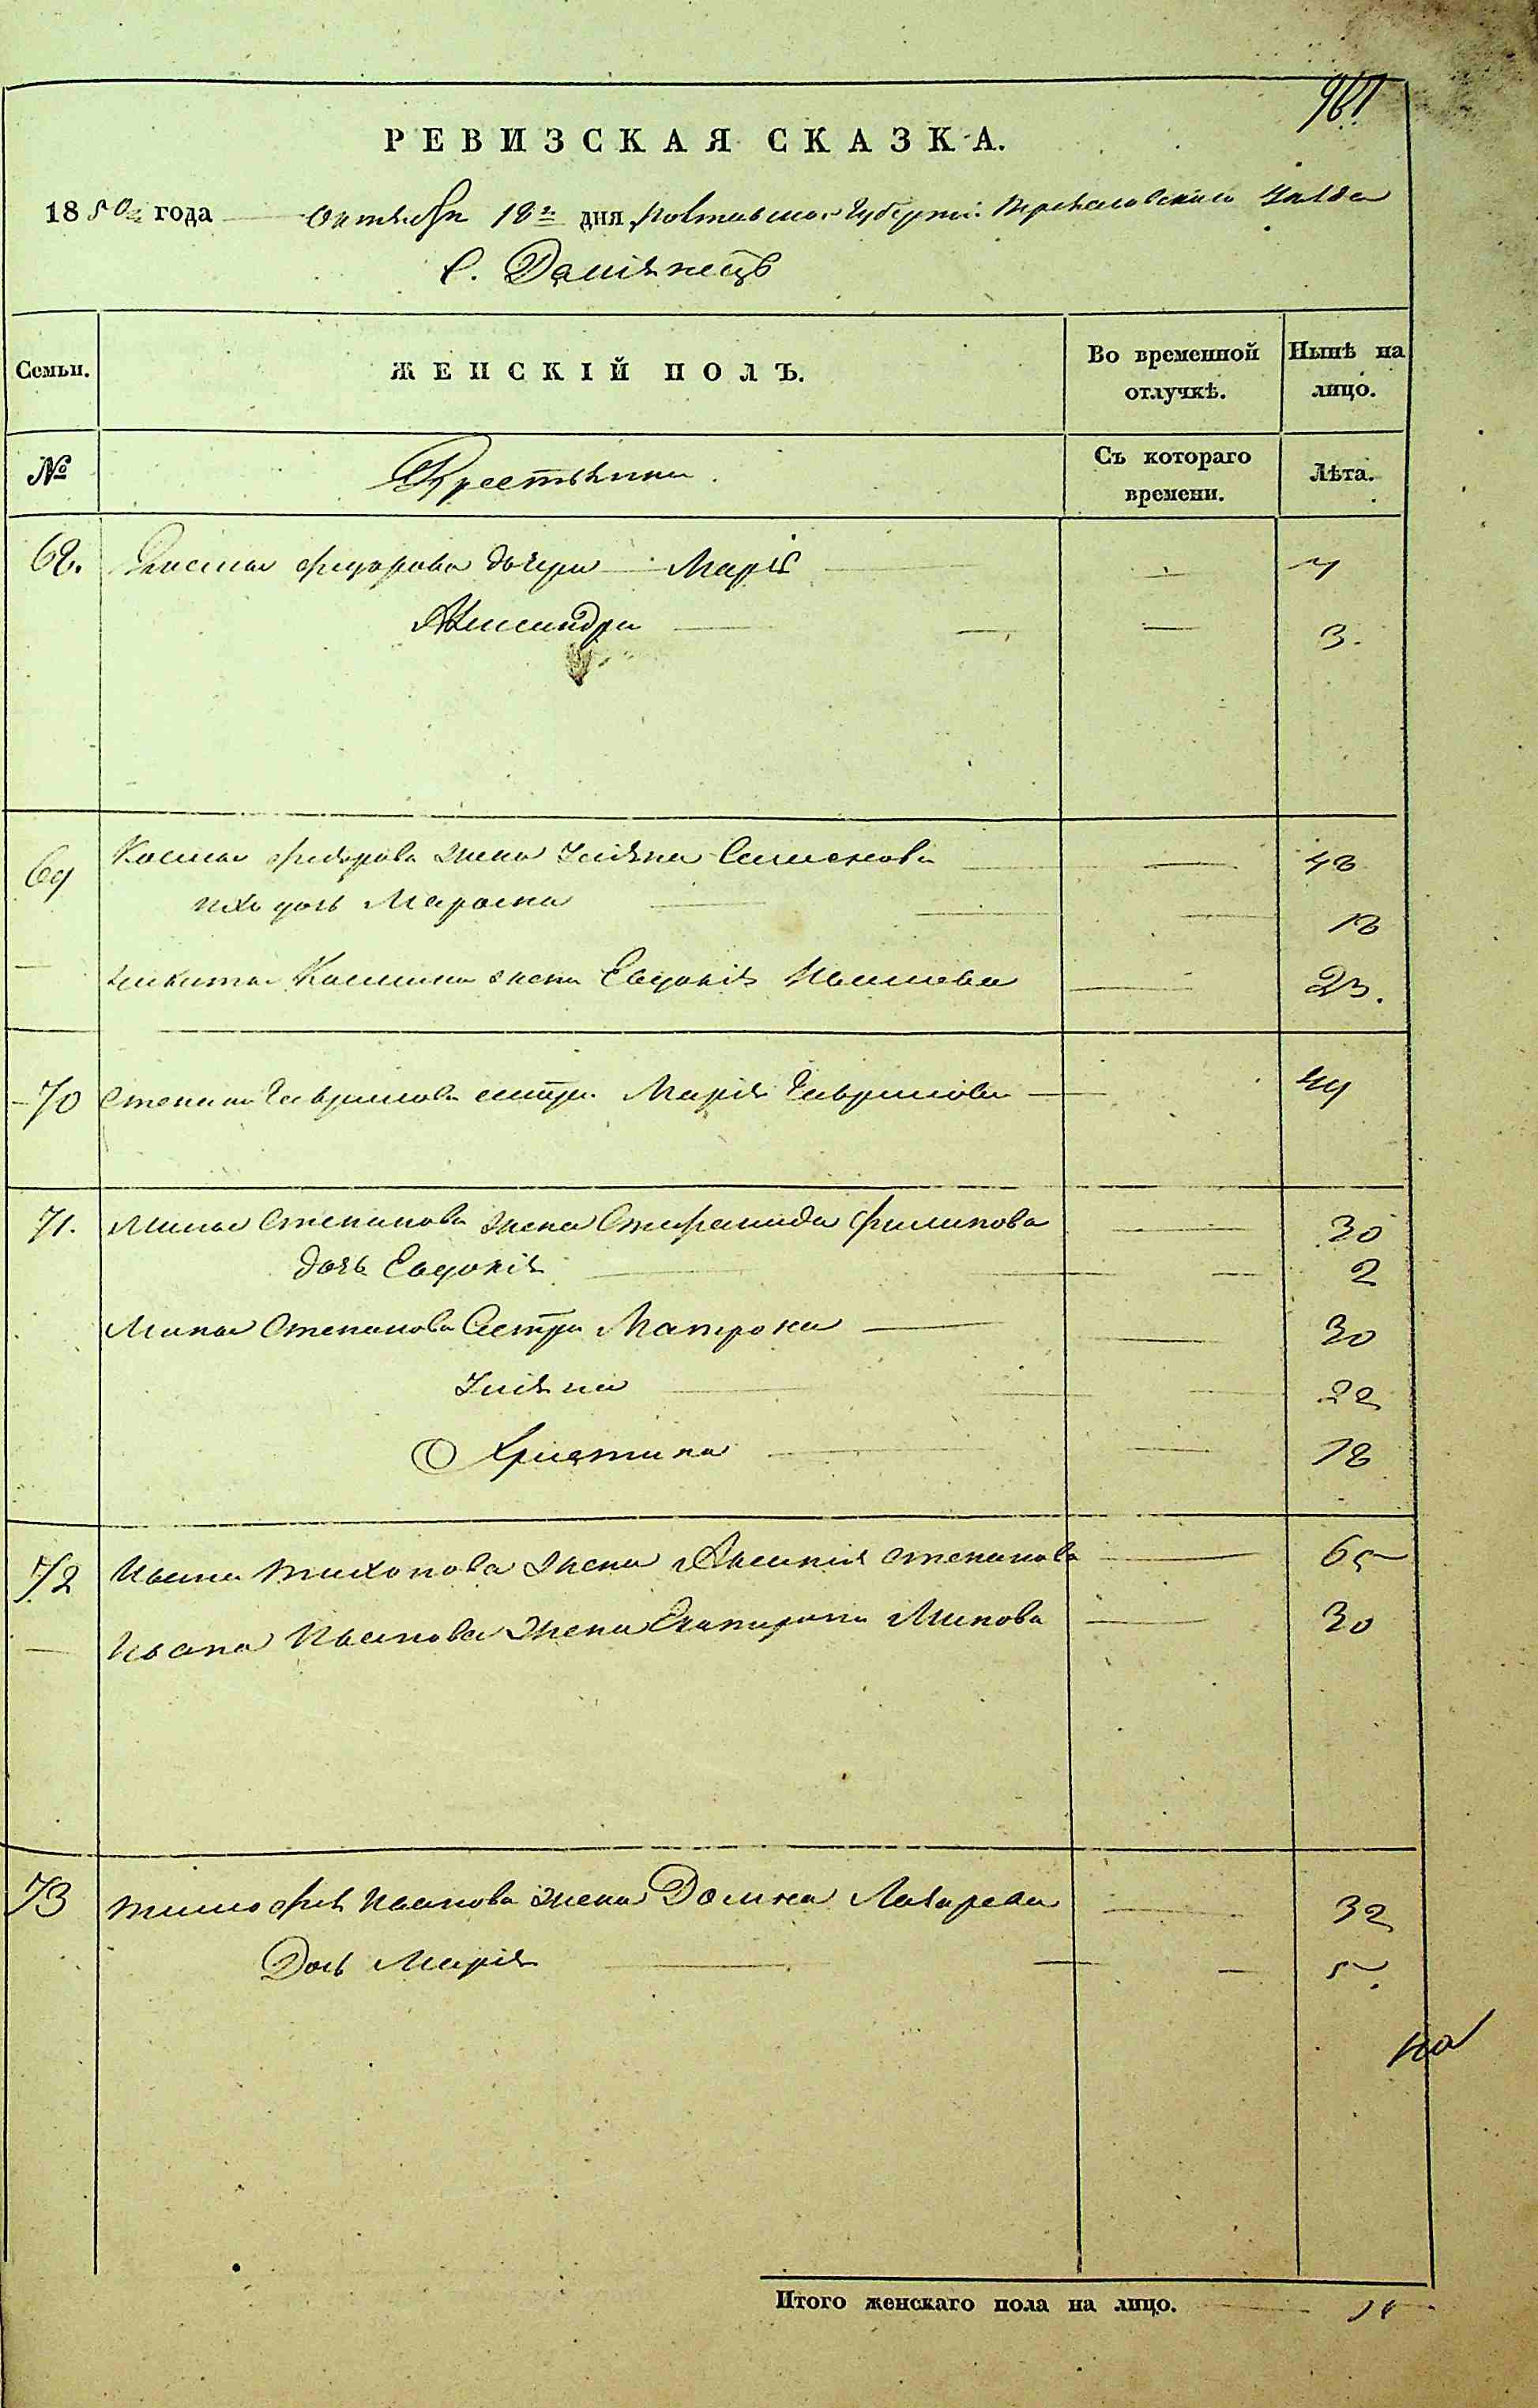 961
РЕВИЗСКАЯ СКАЗКА.
1850 года Октября 18 дня Полтавской Губернии Переяславского Уезда
С. Демьянецъ
Семьи. ЖЕНСКІЙ ПОЛЪ. Во временной отлучкѣ. Нынѣ на лицо.
№ Крестьяни Съ котораго времени. Лѣта.
68. Федорова дочери Марія 7
Александра 3.
69 Косма Федорова жена Ульяна Семенова 48
ихъ дочь Марфа 18
Никита Космина жена Евдокія 23.
70 Степана Гаврилова сестра Марія Гаврилова 49
71. Мины Степанова жена Степанида Филипова 30
дочь Евдокія 2
Мины Степанова Сестра Матрона 30
Ульяна 22
Христина 18
72 Ивана Тихонова жена Степанова 65
Ивана Иванова жена Екатерина Минова 30
73 Тимофея Иванова жена Домна Лазарева 32
Дочь Марія 5.
на
Итого женскаго пола на лицо.